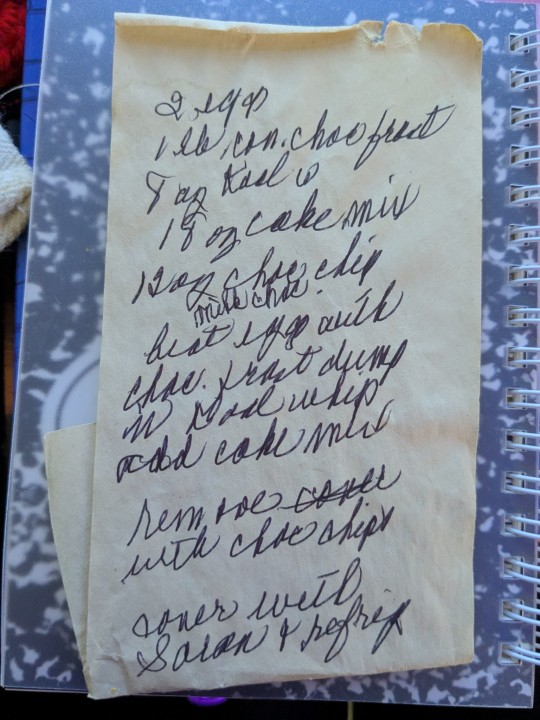 2 eggs
1 lb con. choc frost
8 oz Kool w
18 oz cake mix
12 oz choc chip
milk choc
beat eggs with
choc. frost dump
in Kool whip
add cake mix
remove cover
with choc chips
cover with
Saran & refrig